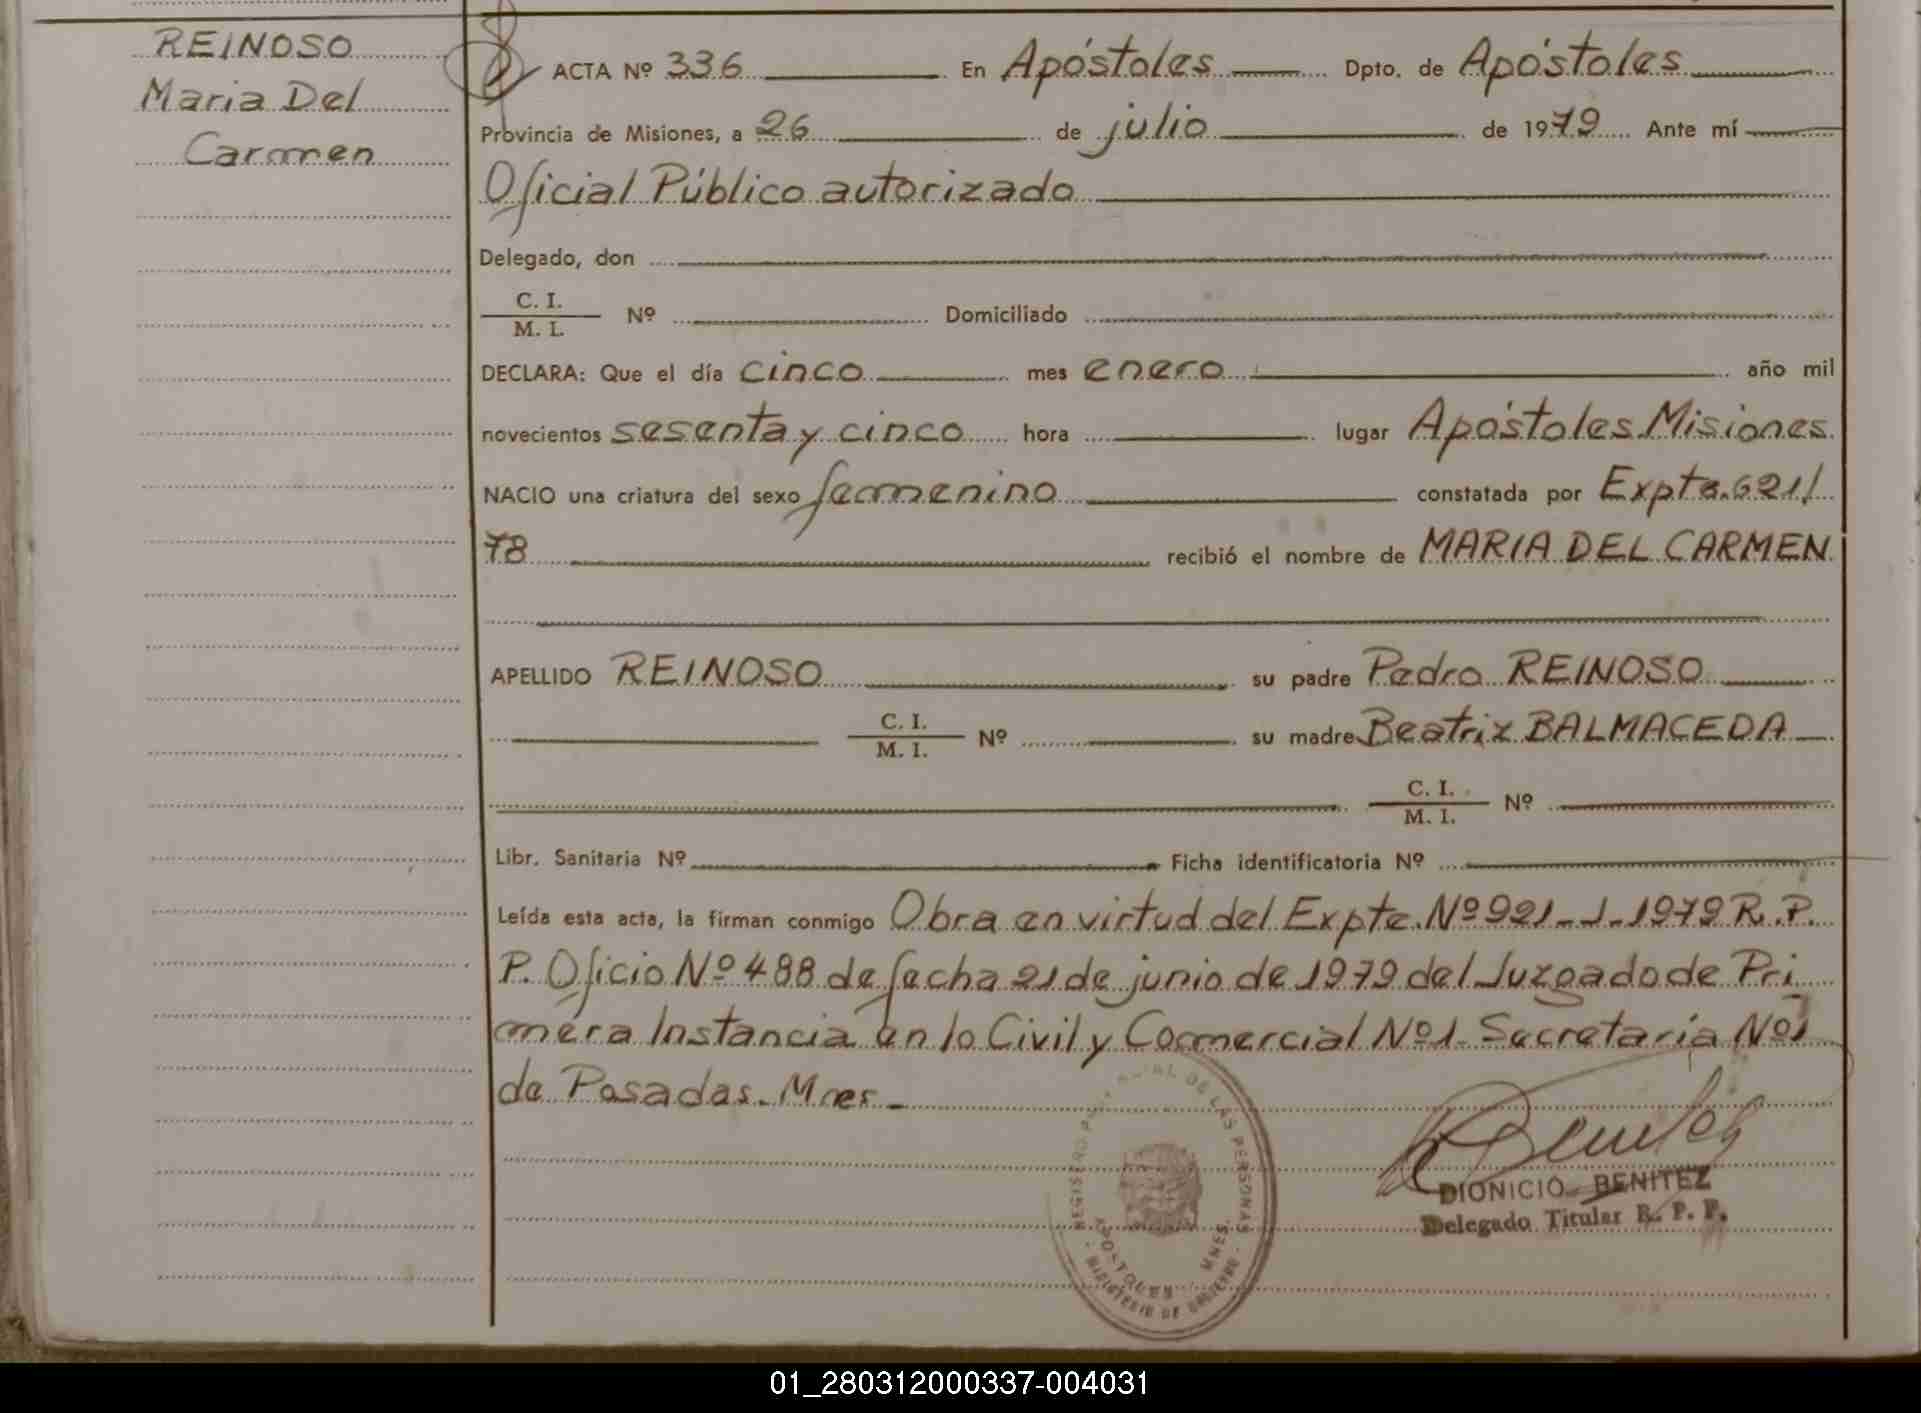 REINOSO
Maria Del
Carmen
ACTA Nº 336 En Apóstoles Dpto. de Apóstoles
Provincia de Misiones, a 26 de julio de 1979 Ante mí
Oficial Público autorizado
Delegado, don
C. I.
M. I. Nº Domiciliado
DECLARA: Que el día cinco mes enero año mil
novecientos sesenta y cinco hora lugar Apóstoles Misiones
NACIO una criatura del sexo femenino constatada por Expte. 621/
78 recibió el nombre de MARIA DEL CARMEN
APELLIDO REINOSO su padre Pedro REINOSO
C. I.
M. I. Nº su madre Beatriz BALMACEDA
C. I.
M. I. Nº
Libr. Sanitaria Nº Ficha identificatoria Nº
Leída esta acta, la firman conmigo Obra en virtud del Expte. Nº 921-J-1979 R. P.
P. Oficio Nº 488 de fecha 21 de junio de 1979 del Juzgado de Pri
mera Instancia en lo Civil y Comercial Nº 1. Secretaria Nº 1
de Posadas. Mnes.-
REGISTRO DE LAS PERSONAS
APOSTOLES MNES.
MINISTERIO DE GOBIERNO
Benitez
DIONICIO BENITEZ
Delegado Titular R. P. P.
01_280312000337-004031